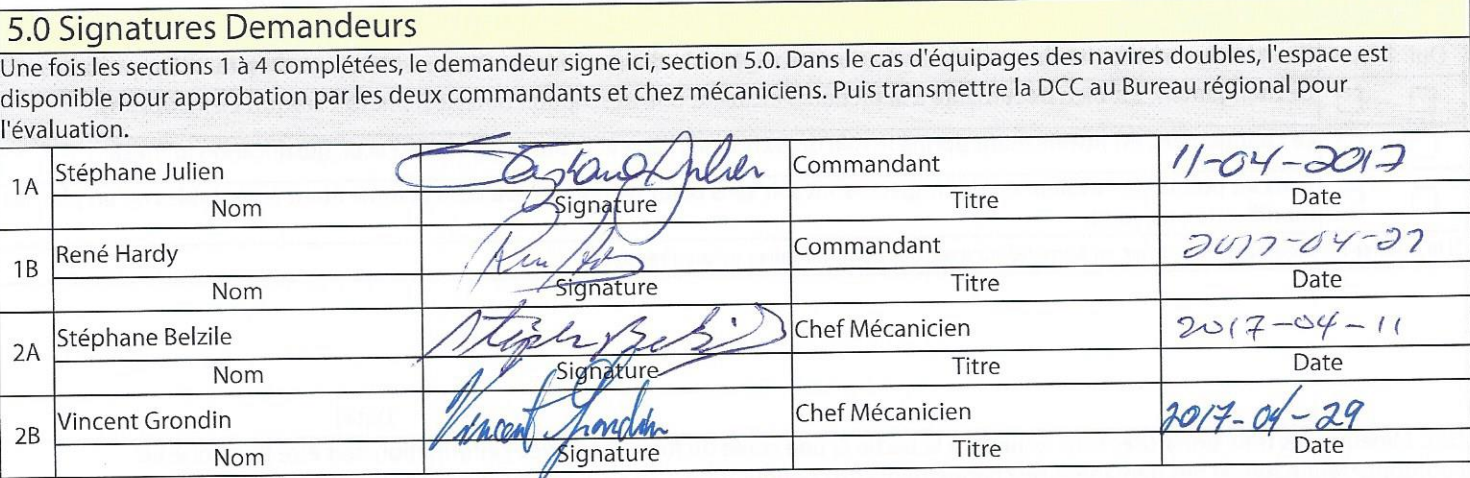 5.0 Signatures Demandeurs
Une fois les sections 1 à 4 complétées, le demandeur signe ici, section 5.0. Dans le cas d'équipages des navires doubles, l'espace est
disponible pour approbation par les deux commandants et chez mécaniciens. Puis transmettre la DCC au Bureau régional pour
l'évaluation.
1A Stéphane Julien Stéphane Julien Commandant 11-04-2017
Nom Signature Titre Date
1B René Hardy Commandant 2017-04-27
Nom Signature Titre Date
2A Stéphane Belzile Stéphane Belzile Chef Mécanicien 2017-04-11
Nom Signature Titre Date
2B Vincent Grondin Vincent Grondin Chef Mécanicien 2017-04-29
Nom Signature Titre Date